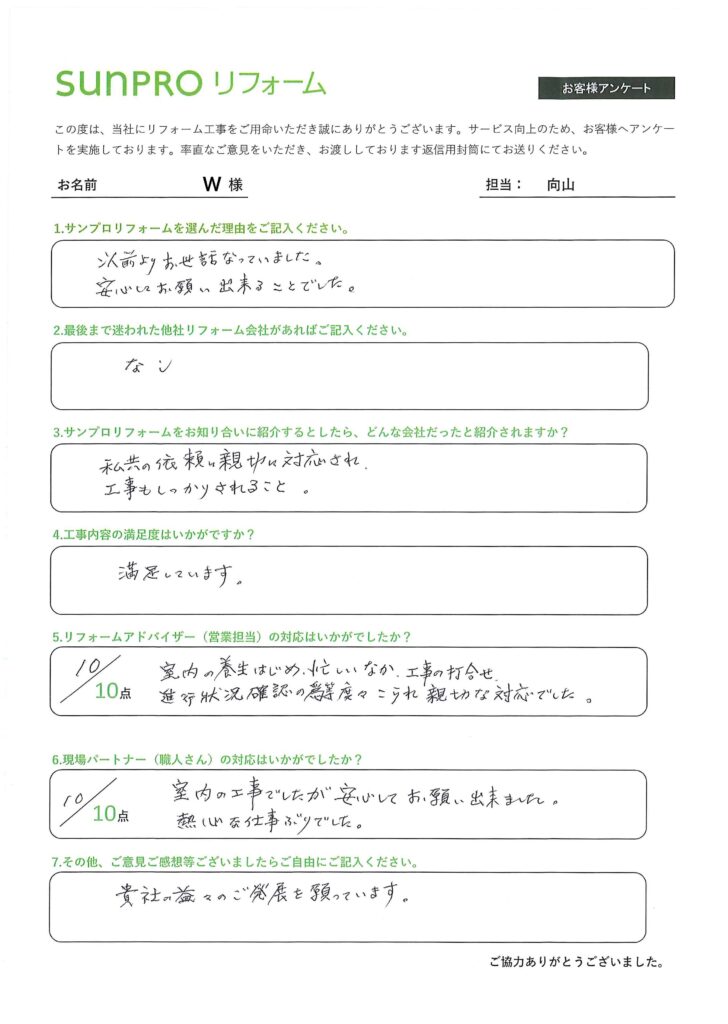 sunpro リフォーム
お客様アンケート
この度は、当社にリフォーム工事をご用命いただき誠にありがとうございます。サービス向上のため、お客様へアンケー
トを実施しております。率直なご意見をいただき、お渡ししております返信用封筒にてお送りください。
お名前 W 様 担当： 向山
1.サンプロリフォームを選んだ理由をご記入ください。
以前よりお世話なっていました。
安心してお願い出来ることでした。
2.最後まで迷われた他社リフォーム会社があればご記入ください。
なし
3.サンプロリフォームをお知り合いに紹介するとしたら、どんな会社だったと紹介されますか？
私共の依頼に親切に対応され、
工事もしっかりされること。
4.工事内容の満足度はいかがですか？
満足しています。
5.リフォームアドバイザー（営業担当）の対応はいかがでしたか？
10/10点
室内の養生はじめ、忙しいなか、工事の打合せ、
進行状況確認の為等度々こられ親切な対応でした。
6.現場パートナー（職人さん）の対応はいかがでしたか？
10/10点
室内の工事でしたが安心してお願い出来ました。
熱心な仕事ぶりでした。
7.その他、ご意見ご感想等ございましたらご自由にご記入ください。
貴社の益々のご発展を願っています。
ご協力ありがとうございました。